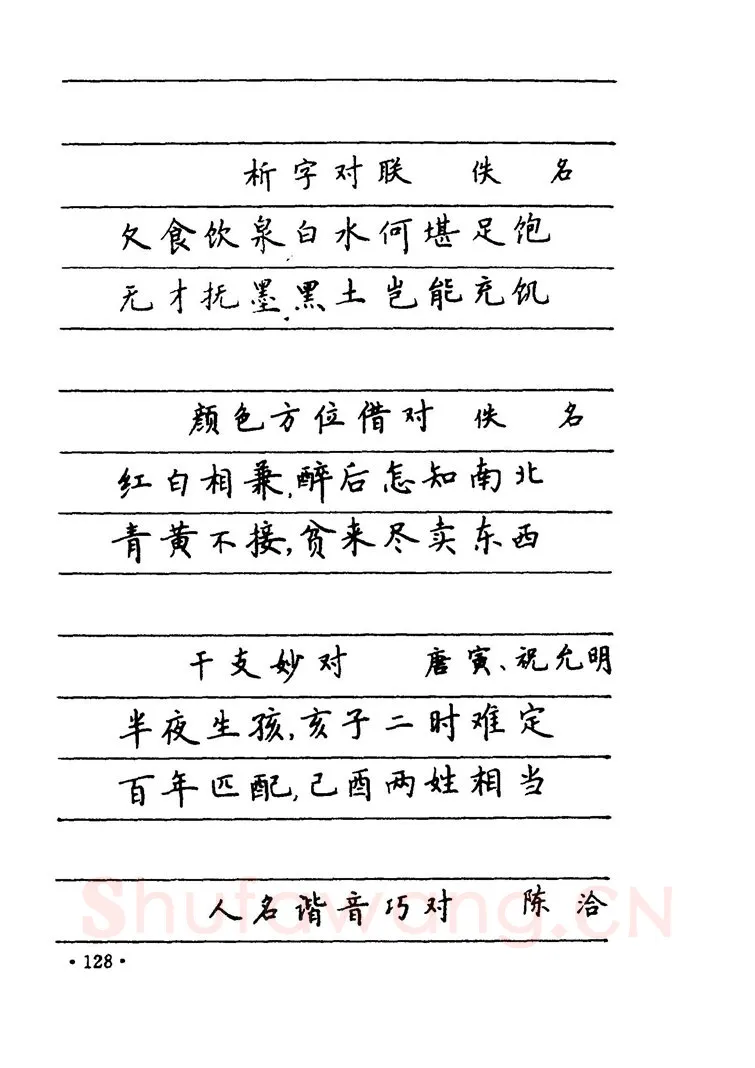 析字对联 佚名
欠食饮泉白水何堪足饱
无才抚墨黑土岂能充饥
颜色方位借对 佚名
红白相兼,醉后怎知南北
青黄不接,贫来尽卖东西
干支妙对 唐寅、祝允明
半夜生孩,亥子二时难定
百年匹配,己酉两姓相当
人名谐音巧对 陈洽
Shufawang.CN
·128·